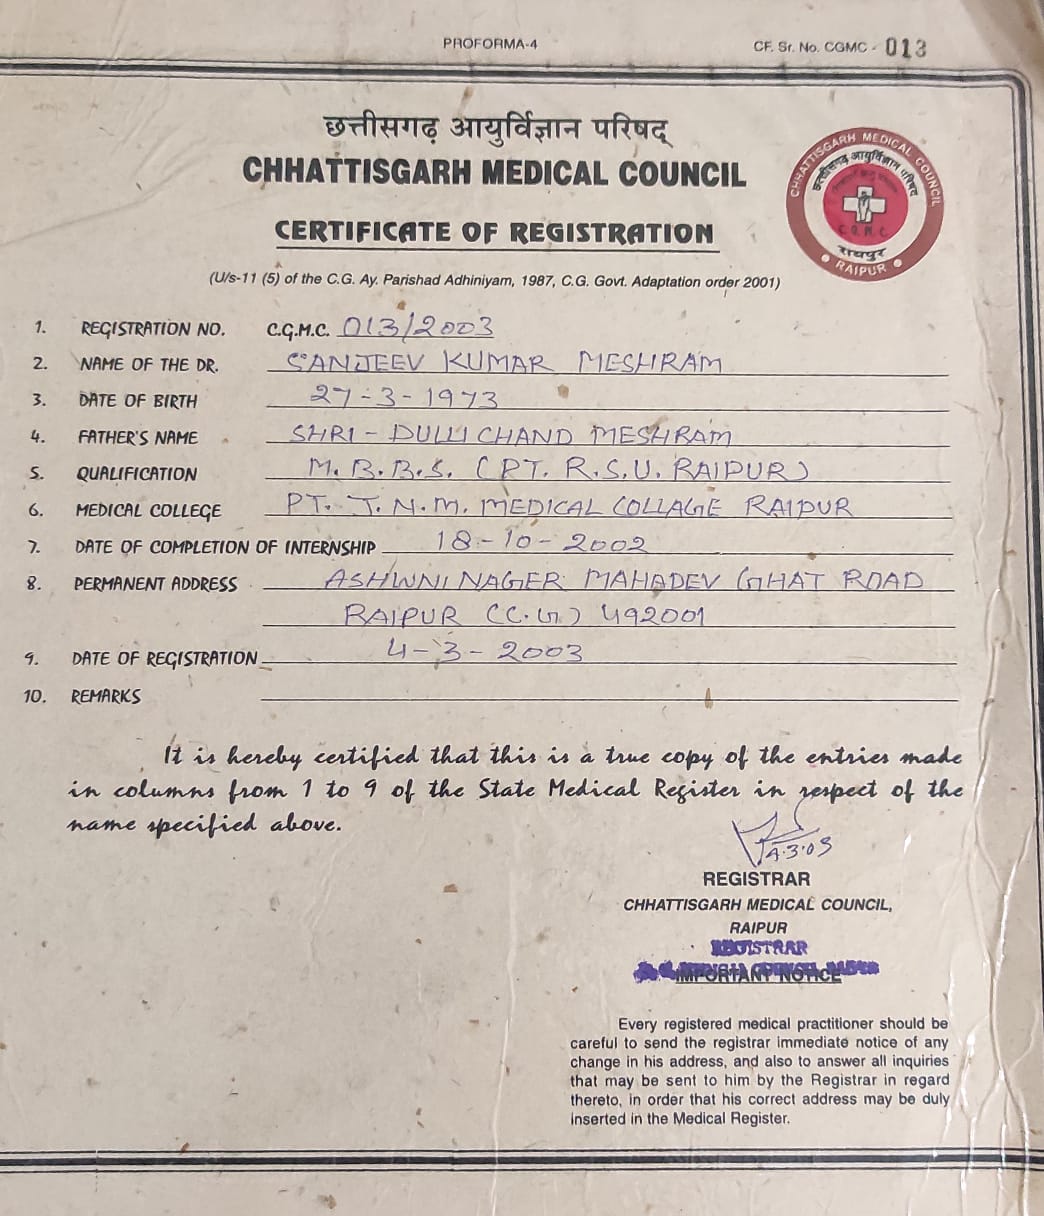 PROFORMA-4
CF. Sr. No. CGMC - 013
छत्तीसगढ़ आयुर्विज्ञान परिषद्
CHHATTISGARH MEDICAL COUNCIL
CERTIFICATE OF REGISTRATION
(U/s-11 (5) of the C.G. Ay. Parishad Adhiniyam, 1987, C.G. Govt. Adaptation order 2001)
CHHATTISGARH MEDICAL COUNCIL
छत्तीसगढ़ आयुर्विज्ञान परिषद्
C.G.M.C.
रायपुर
RAIPUR
1. REGISTRATION NO. C.G.M.C. 013/2003
2. NAME OF THE DR. SANJEEV KUMAR MESHRAM
3. DATE OF BIRTH 27-3-1973
4. FATHER'S NAME SHRI - DULLI CHAND MESHRAM
5. QUALIFICATION M.B.B.S. (PT. R.S.U. RAIPUR)
6. MEDICAL COLLEGE PT. J.N.M. MEDICAL COLLAGE RAIPUR
7. DATE OF COMPLETION OF INTERNSHIP 18-10-2002
8. PERMANENT ADDRESS ASHWNI NAGER MAHADEV GHAT ROAD
RAIPUR (C.G) 492001
9. DATE OF REGISTRATION 4-3-2003
10. REMARKS
It is hereby certified that this is a true copy of the entries made
in columns from 1 to 9 of the State Medical Register in respect of the
name specified above.
4.3.03
REGISTRAR
CHHATTISGARH MEDICAL COUNCIL,
RAIPUR
REGISTRAR
IMPORTANT NOTICE
Every registered medical practitioner should be
careful to send the registrar immediate notice of any
change in his address, and also to answer all inquiries
that may be sent to him by the Registrar in regard
thereto, in order that his correct address may be duly
inserted in the Medical Register.